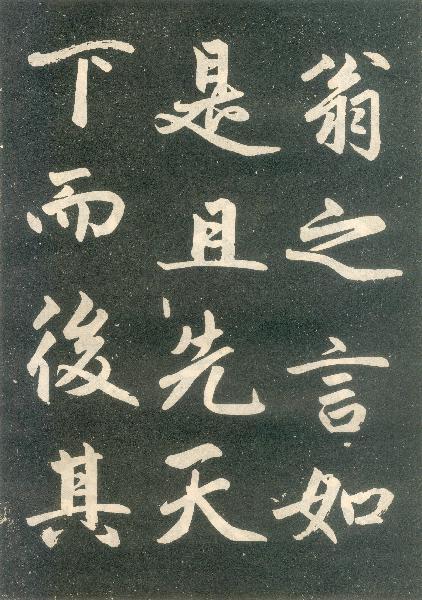 翁之言如
是且先天
下而後其